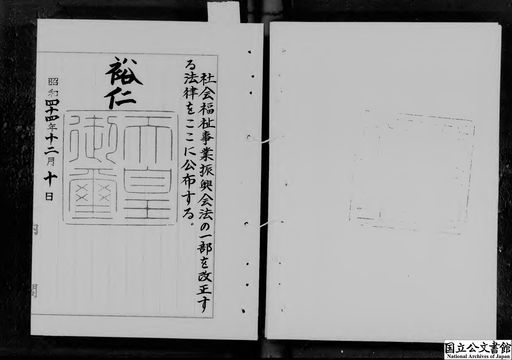 社会福祉事業振興会法の一部を改正す
る法律をここに公布する。
裕仁
天皇
御璽
昭和四十四年十二月十日
国立公文書館
National Archives of Japan